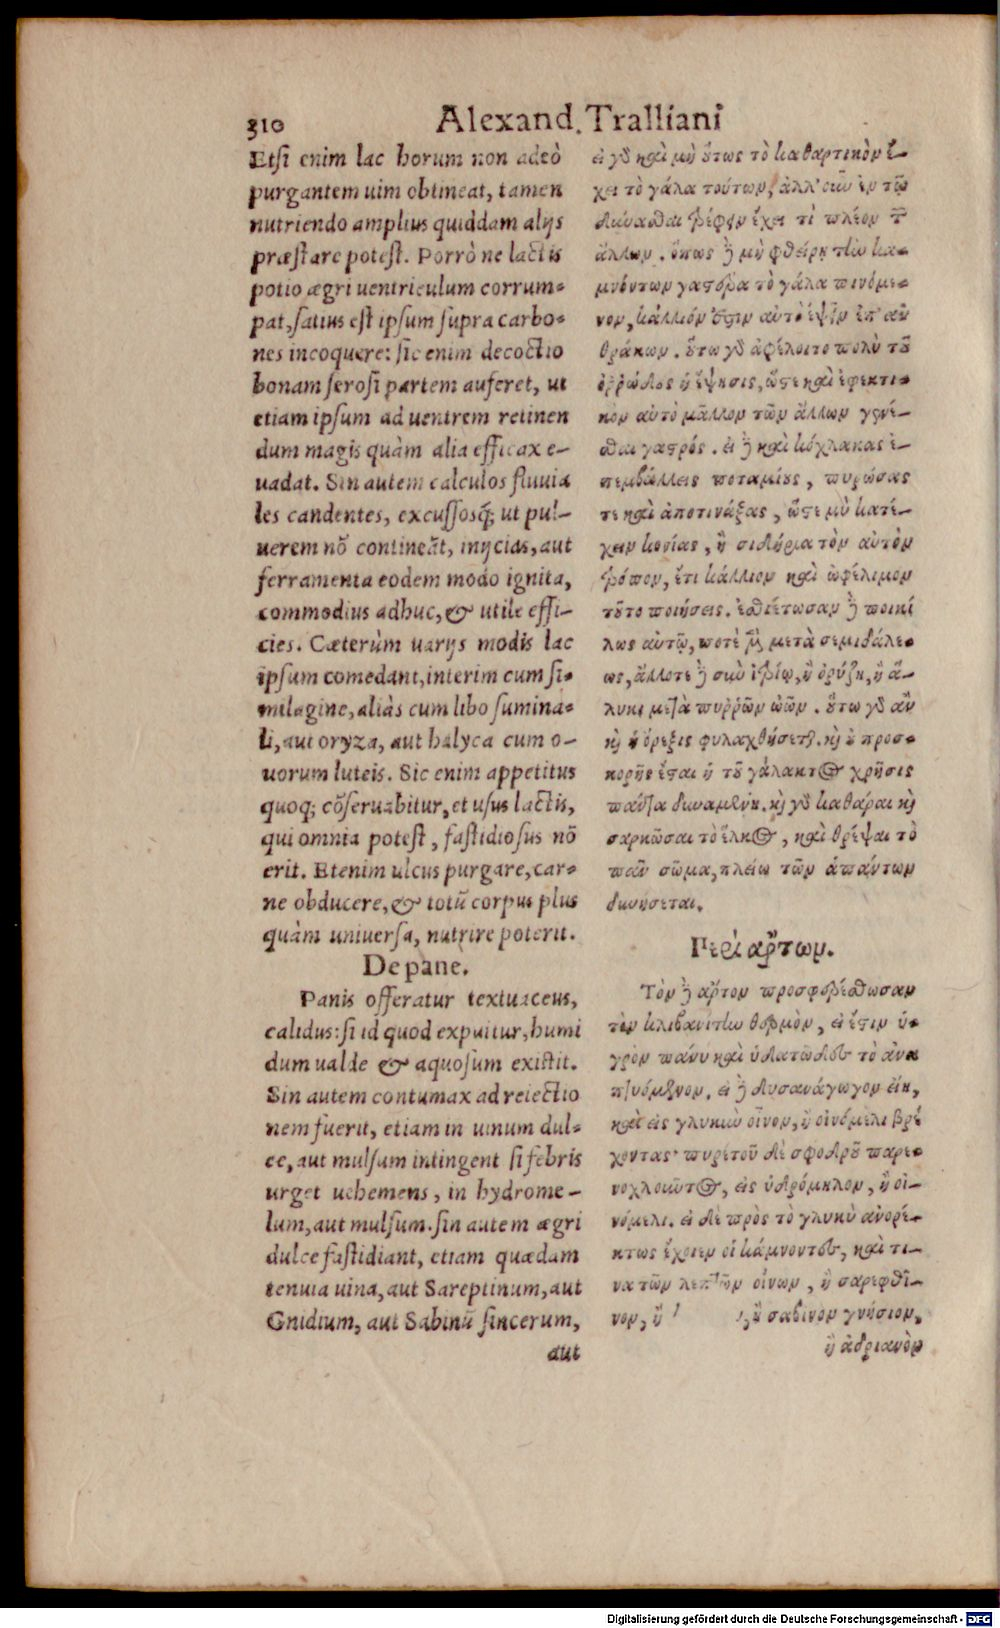 310 Alexand. Tralliani
Etſi enim lac horum non adeò
purgantem uim obtineat, tamen
nutriendo amplius quiddam alijs
præſtare poteſt. Porrò ne lactis
potio ægri uentriculum corrum-
pat, ſatius eſt ipſum ſupra carbo-
nes incoquere: ſic enim decoctio
bonam ſeroſi partem auferet, ut
etiam ipſum ad uentrem retinen
dum magis quàm alia efficax e-
uadat. Sin autem calculos fluuia
les candentes, excuſſosq́; ut pul-
uerem nõ contineãt, inijcias, aut
ferramenta eodem modo ignita,
commodius adhuc, & utile effi-
cies. Cæterùm uarijs modis lac
ipſum comedant, interim cum ſi-
milagine, aliàs cum libo ſumina-
li, aut oryza, aut halyca cum o-
uorum luteis. Sic enim appetitus
quoq; cõſeruabitur, et uſus lactis,
qui omnia poteſt, faſtidioſus nõ
erit. Etenim ulcus purgare, car-
ne obducere, & totũ corpus plus
quàm uniuerſa, nutrire poterit.
De pane.
Panis offeratur textuaceus,
calidus: ſi id quod expuitur, humi
dum ualde & aquoſum exiſtit.
Sin autem contumax ad reiectio
nem fuerit, etiam in uinum dul-
ce, aut mulſum intingent ſi febris
urget uehemens, in hydrome-
lum, aut mulſum. ſin autem ægri
dulce faſtidiant, etiam quædam
tenuia uina, aut Sareptinum, aut
Gnidium, aut Sabinũ ſincerum,
aut
εἰ γὸ καὶ μὴ οὕτως τὸ καθαρτικὸν ἔ-
χει τὸ γάλα τούτων, ἀλλ' οὖν ἐν τῷ
δύνασθαι τρέφειν ἔχει τὶ πλέον τῶν
ἄλλων. ὅπως δὲ μὴ φθείρῃ τὴν κα-
μνόντων γαστέρα τὸ γάλα πινόμε-
νον, κάλλιόν ἐστιν αὐτὸ ἑψεῖν ἐπ' ἀν
θράκων. οὕτω γὸ ἀφέλοιτο πολὺ τοῦ
ὀῤῥώδους ἡ ἕψησις, ὥστε καὶ ἐφεκτι-
κὸν αὐτὸ μᾶλλον τῶν ἄλλων γενέ-
σθαι γαστρός. εἰ δὲ καὶ κόχλακας ἐ-
πεμβάλλεις ποταμίους, πυρώσας
τε καὶ ἀποτινάξας, ὥστε μὴ κατέ-
χειν κονίας, ἢ σιδήρια τὸν αὐτὸν
τρόπον, ἔτι κάλλιον καὶ ὠφέλιμον
τοῦτο ποιήσεις. ἐσθιέτωσαν δὲ ποικί
λως αὐτῷ, ποτὲ μὲν μετὰ σεμιδάλε-
ως, ἄλλοτε δὲ σὺν ἰτρίῳ, ἢ ὀρύζῃ, ἢ ἅ-
λυκι μετὰ πυῤῥῶν ὠῶν. οὕτω γὸ ἂν
καὶ ἡ ὄρεξις φυλαχθήσεται. καὶ οὐ προσ-
κορὴς ἔσται ἡ τοῦ γάλακτος χρῆσις
πάντα δυναμένη. καὶ γὸ καθάραι καὶ
σαρκῶσαι τὸ ἕλκος, καὶ θρέψαι τὸ
πᾶν σῶμα, πλείω τῶν ἁπάντων
δυνήσεται.
Περὶ ἄρτων.
Τὸν δὲ ἄρτον προσφερέσθωσαν
τὸν κλιβανίτην θερμὸν, εἰ ἔστιν ὑ-
γρὸν πάνυ καὶ ὑδατῶδες τὸ ἀνα
πτυόμενον. εἰ δὲ δυσανάγωγον εἴη,
καὶ εἰς γλυκὺν οἶνον, ἢ οἰνόμελι βρέ
χοντας· πυρετοῦ δὲ σφοδροῦ παρε-
νοχλοῦντος, εἰς ὑδρόμηλον, ἢ οἰ-
νόμελι. εἰ δὲ πρὸς τὸ γλυκὺ ἀνορέ-
κτως ἔχοιεν οἱ κάμνοντες, καὶ τι-
να τῶν λεπτῶν οἴνων, ἢ σαρεφθῖ-
νον, ἢ σαβῖνον γνήσιον,
ἢ ἀδριανὸν
Digitalisierung gefördert durch die Deutsche Forschungsgemeinschaft - DFG